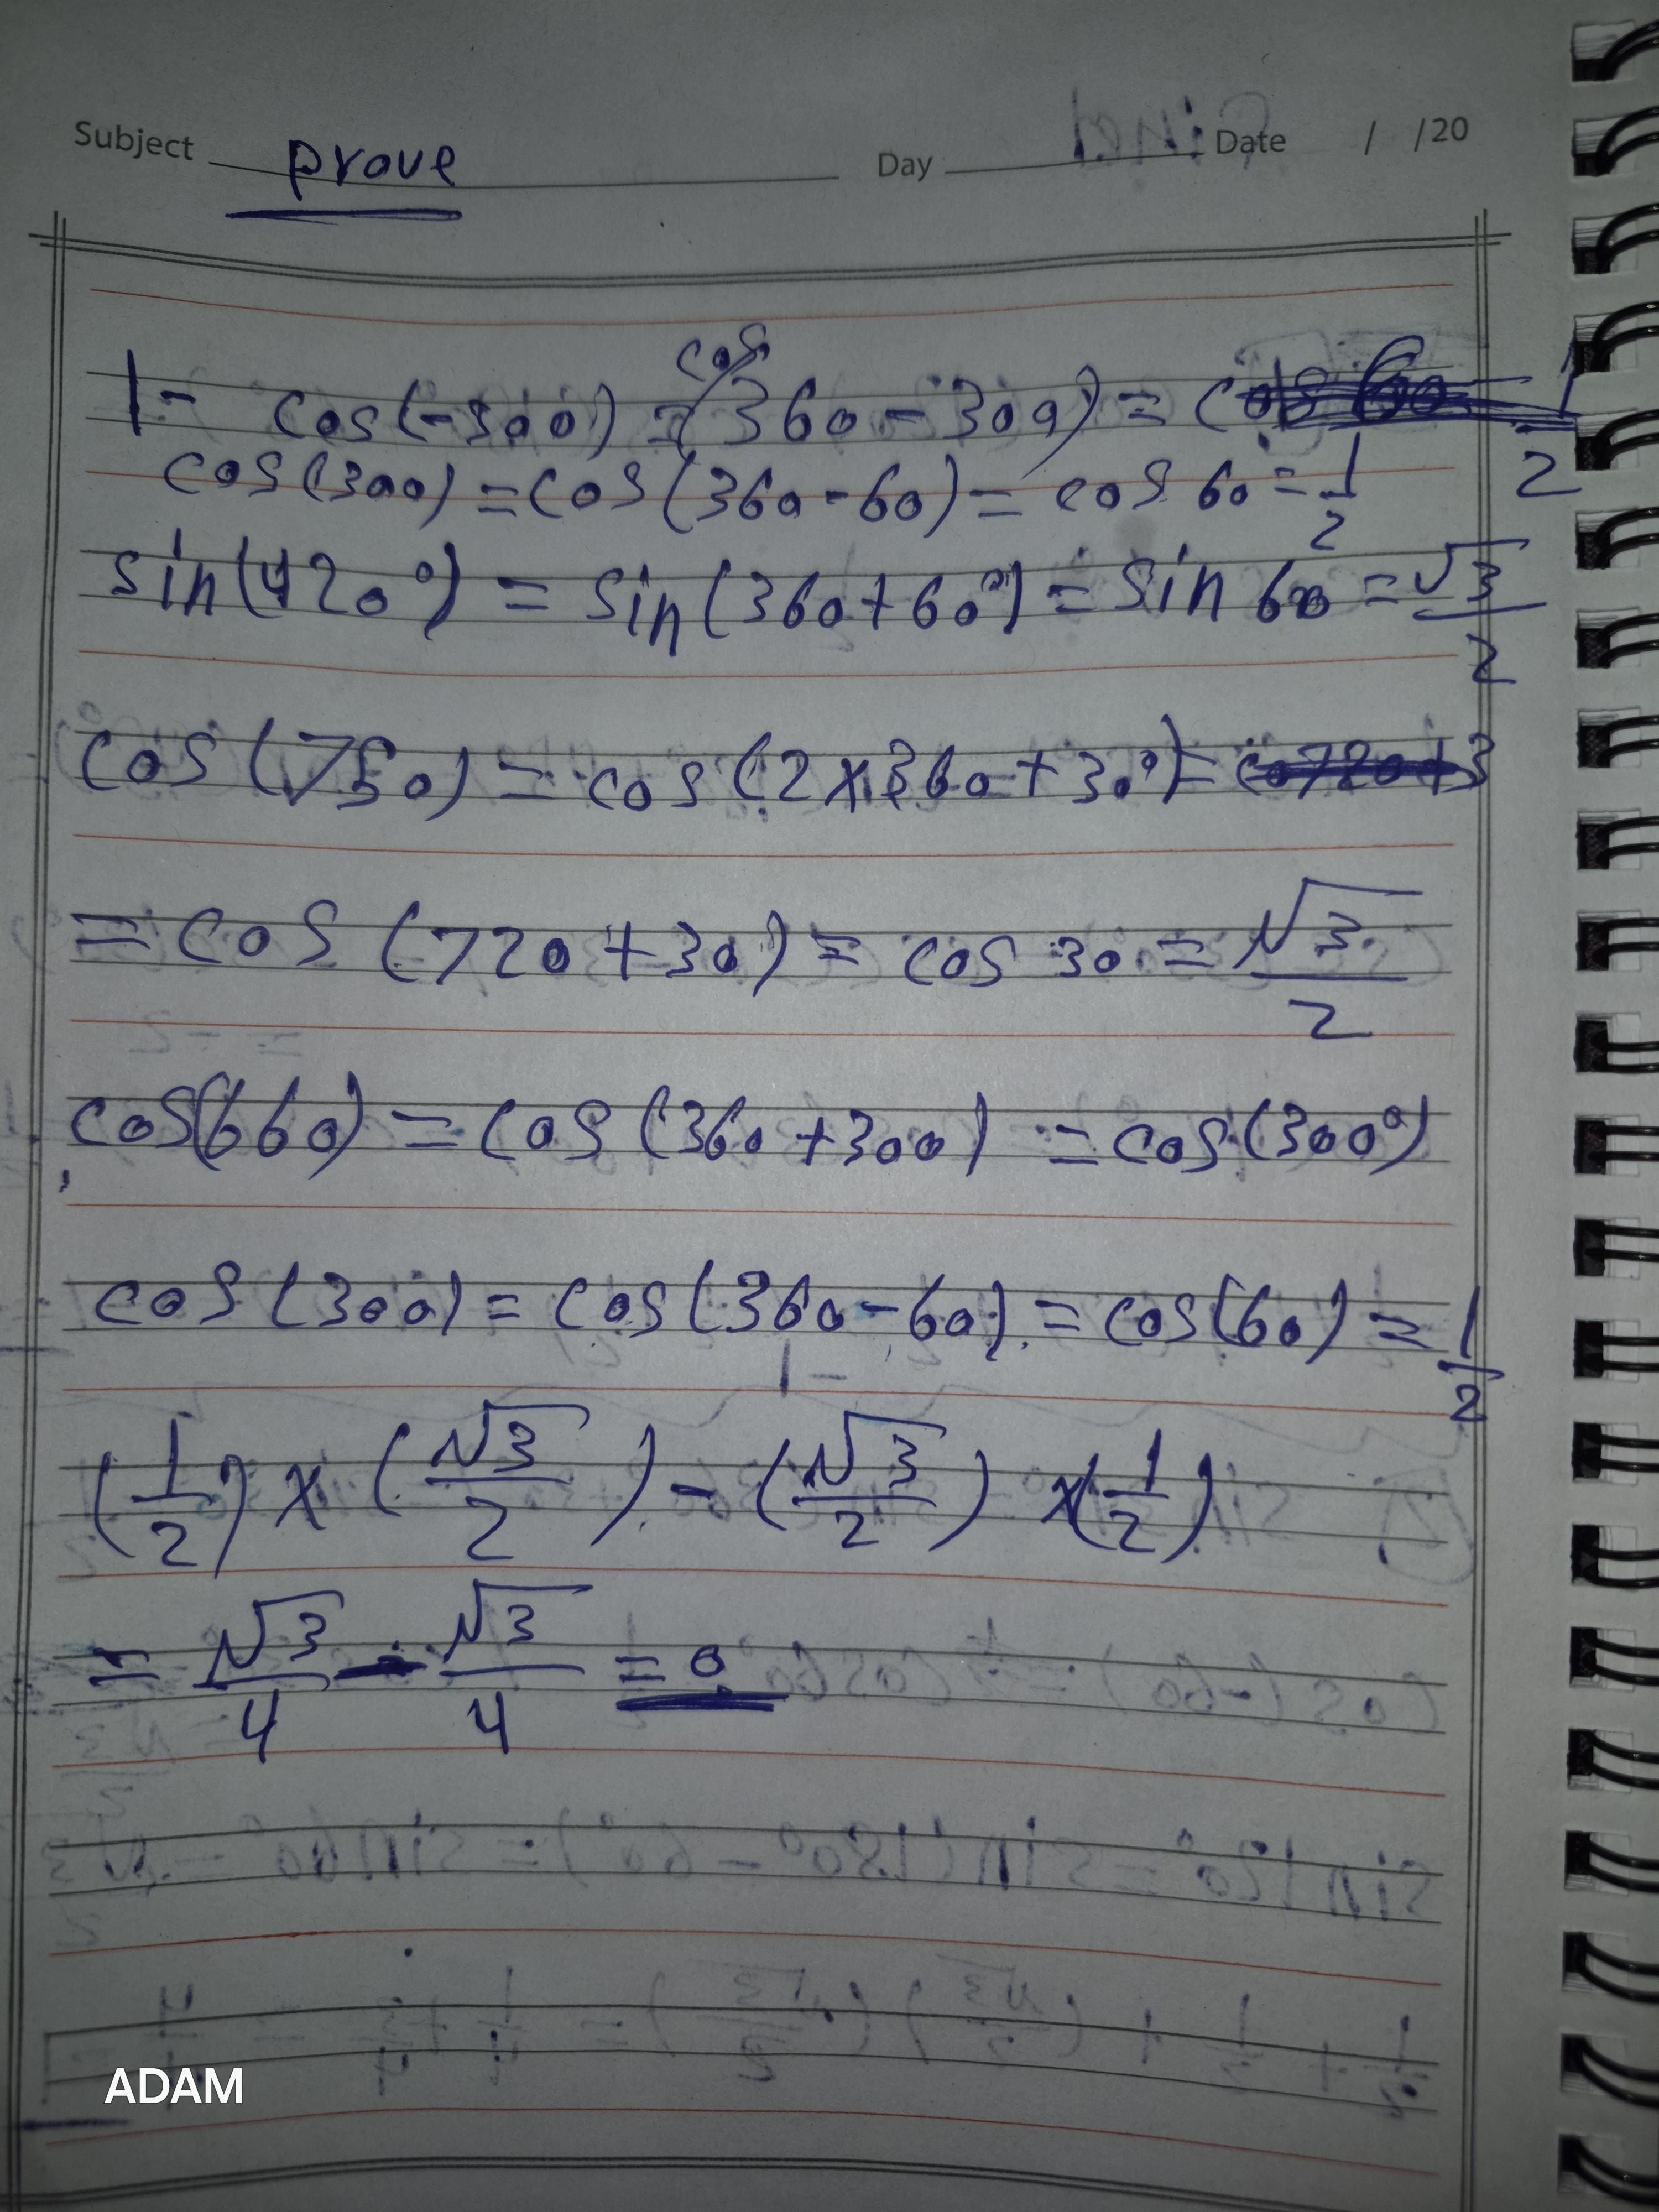 Subject prove Day Date / /20
1- cos(-300) = cos(360-300) =
cos(300) = cos(360-60) = cos 60 = 1/2
sin(420°) = sin(360+60°) = sin 60 = √3/2
cos (750) = cos (2×360+30°) =
= cos (720+30) = cos 30 = √3/2
cos(660) = cos (360+300) = cos(300°)
cos (300) = cos(360-60) = cos(60) = 1/2
(1/2) × (√3/2) - (√3/2) ×(1/2)
= √3/4 - √3/4 = 0
ADAM